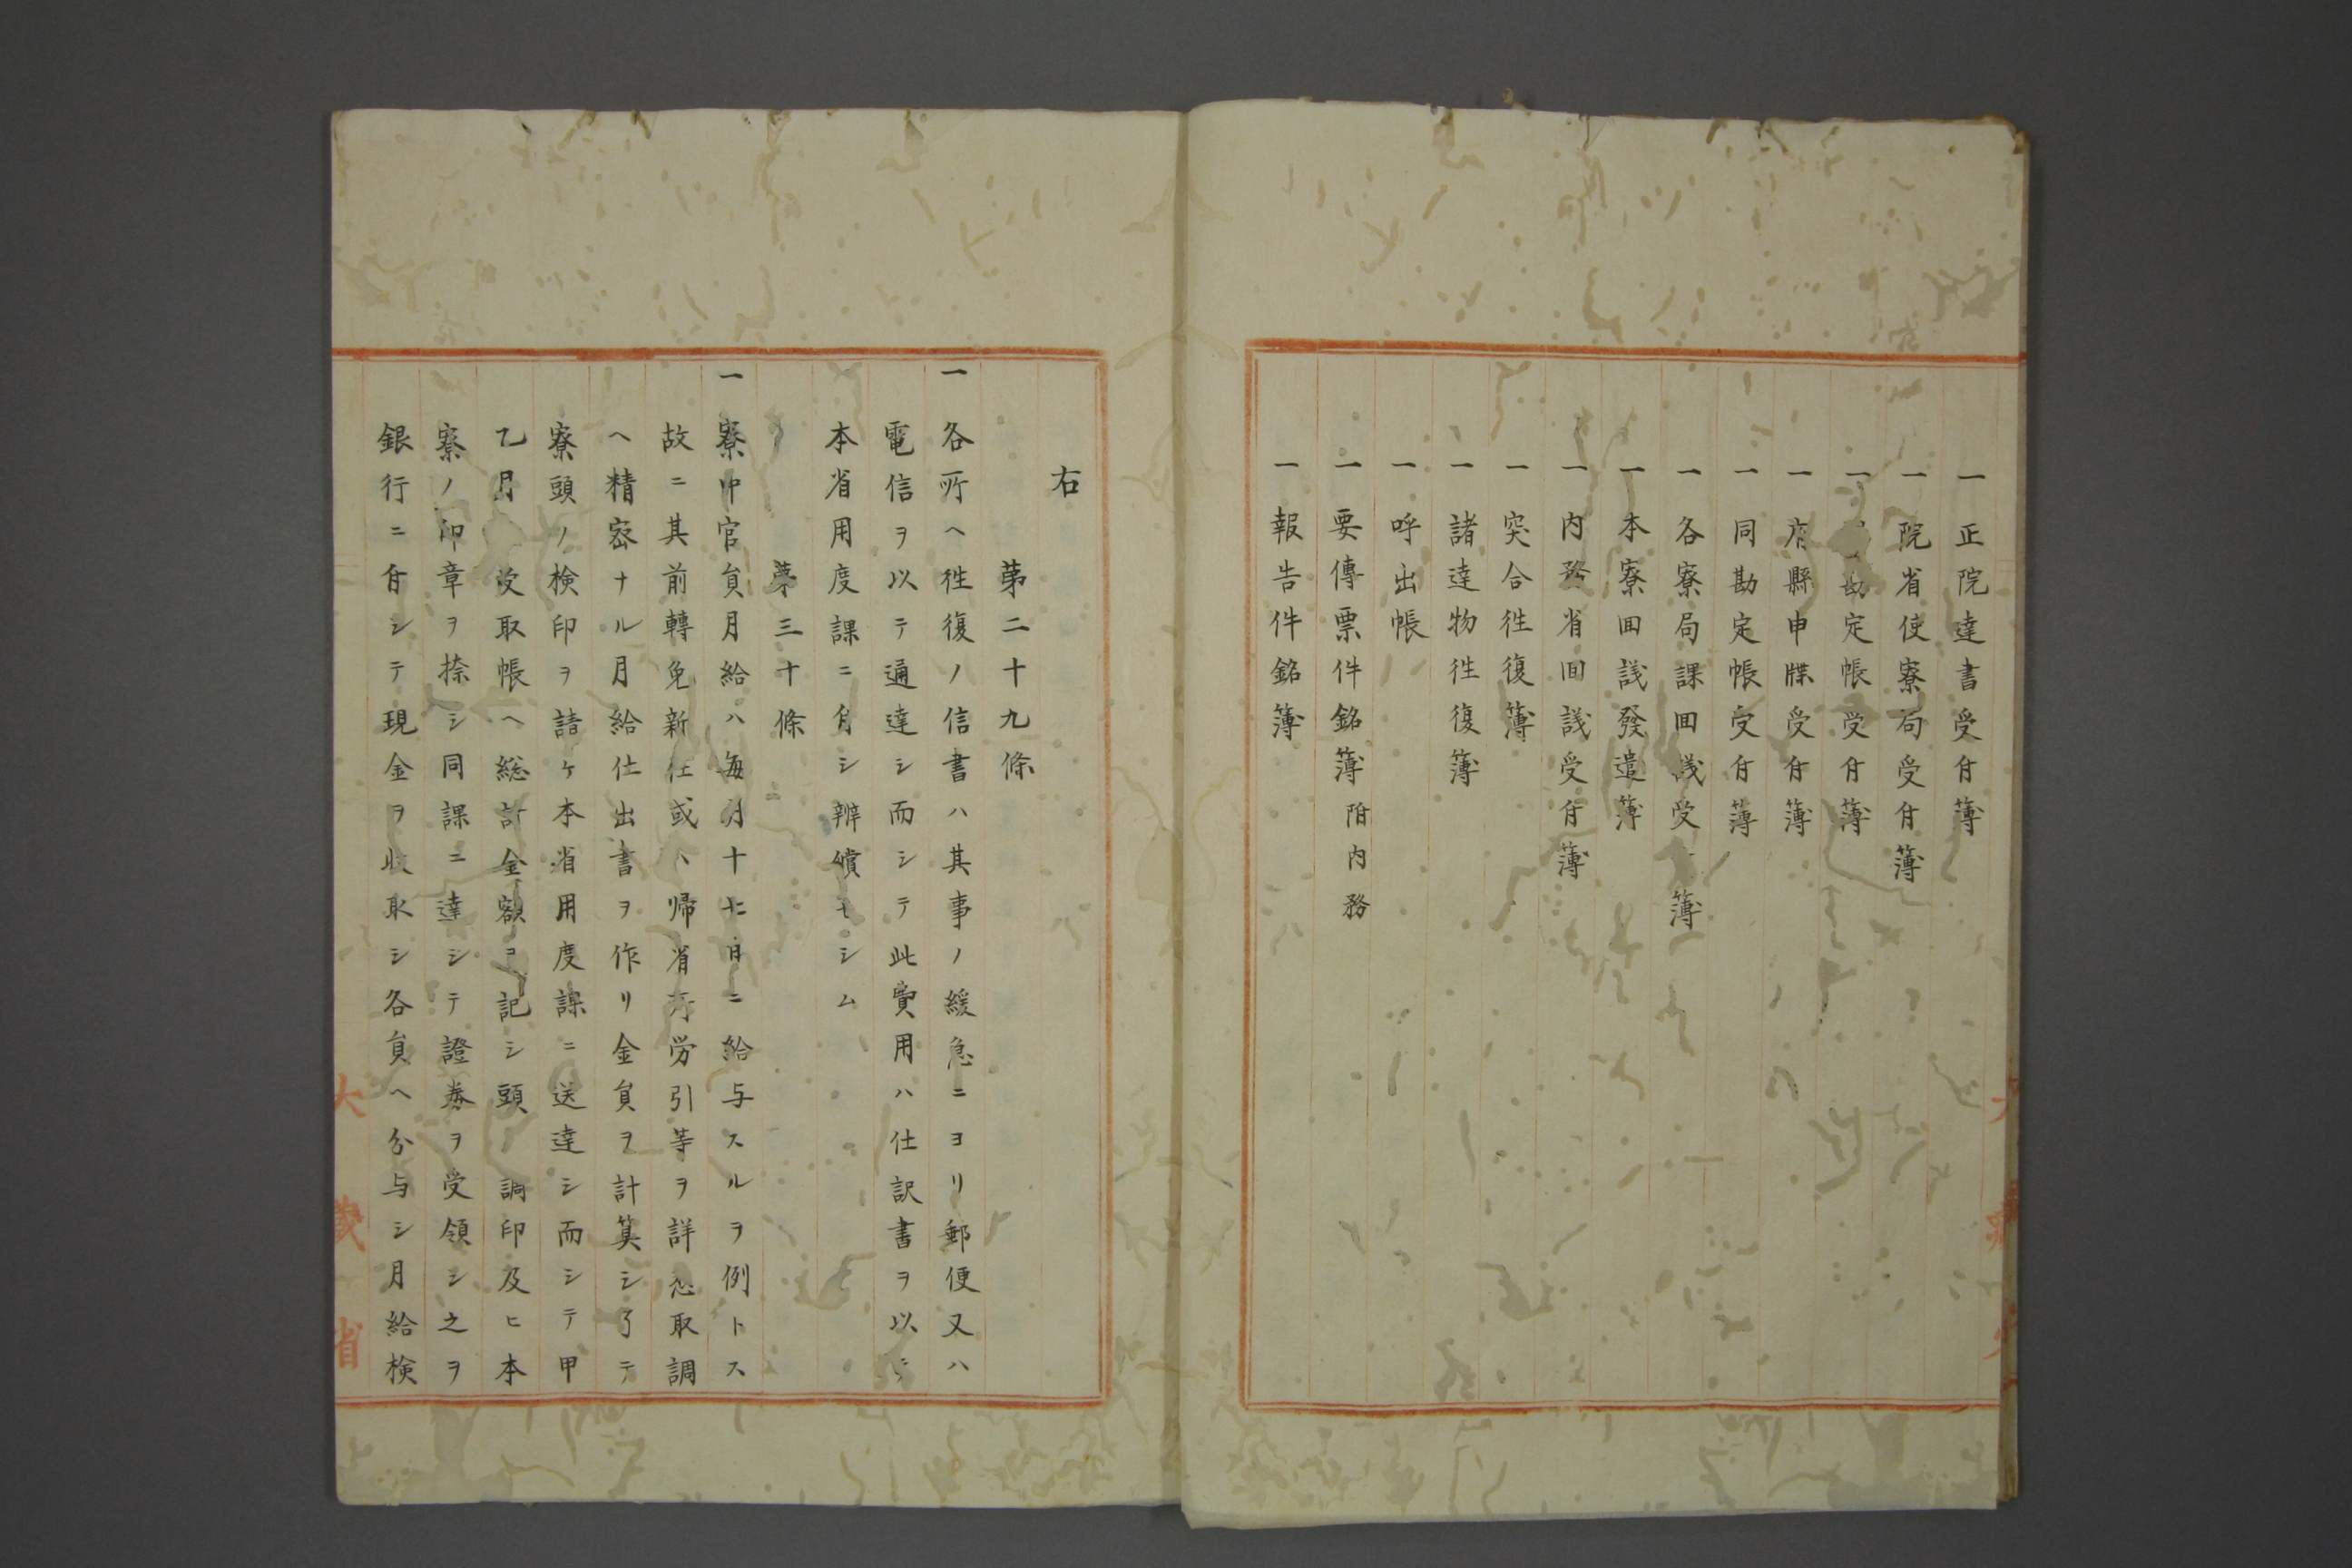 一正院達書受付簿
一院省使寮局受付簿
一勘定帳受付簿
一府縣申牒受付簿
一同勘定帳受付簿
一各寮局課回議受簿
一本寮回議發遣簿
一内務省回議受付簿
一突合徃復簿
一諸達物徃復簿
一呼出帳
一要傳票件銘簿 附内務
一報告件銘簿
右
第二十九條
一各所ヘ徃復ノ信書ハ其事ノ緩急ニヨリ郵便又ハ
電信ヲ以テ通達シ而シテ此費用ハ仕訳書ヲ以テ
本省用度課ニ付シ辨償セシム
第三十條
一寮中官員月給ハ毎月十七日ニ給与スルヲ例トス
故ニ其前轉免新任或ハ帰省所労引等ヲ詳悉取調
ヘ精密ナル月給仕出書ヲ作リ金員ヲ計算シ了テ
寮頭ノ検印ヲ請ケ本省用度課ニ送達シ而シテ甲
乙月受取帳ヘ総計金額ヲ記シ頭ノ調印及ヒ本
寮ノ印章ヲ捺シ同課ニ達シテ證券ヲ受領シ之ヲ
銀行ニ付シテ現金ヲ收取シ各員ヘ分与シ月給検
大藏省